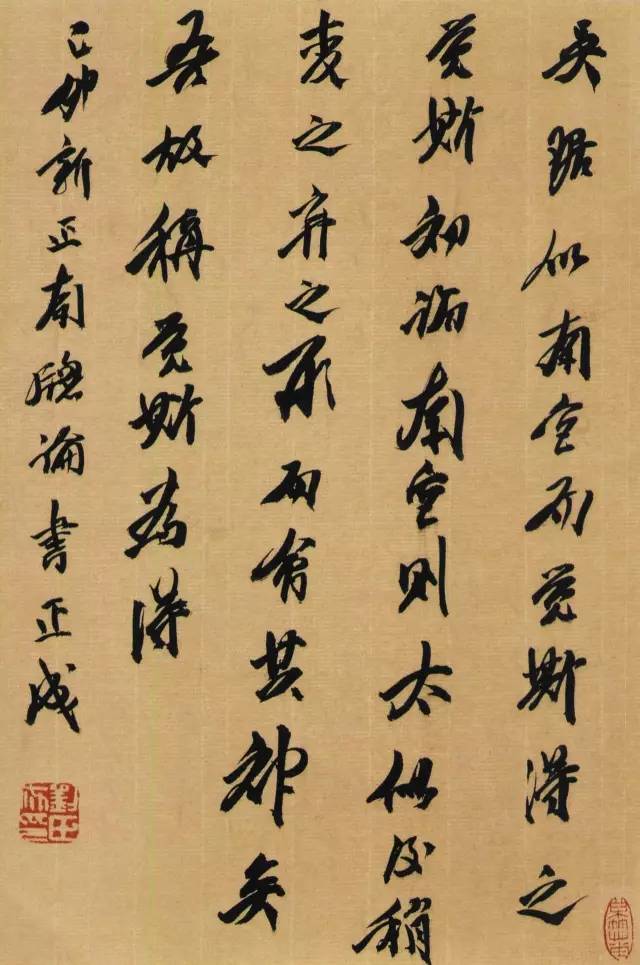 吴琚似南宫而觉斯得之
觉斯初临南宫则太似后稍
变之弃之形而会其神矣
吾故称觉斯为得
己卯新正南窗论书正成